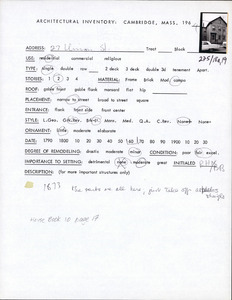 ARCHITECTURAL INVENTORY: CAMBRIDGE, MASS, 196
ADDRESS: 27 Union St Tract Block
USE: residential commercial religious
TYPE: single double row 2 deck 3 deck double 3d tenement Apart.
STORIES: 1 2 3 4 MATERIAL: Frame Brick Mod. compo
ROOF: gable front gable flank mansard flat hip
PLACEMENT: narrow to street broad to street square
ENTRANCE: front side front center side center
STYLE: L.Geo. Gk.Rev. Br-It. Mans. Med. Q.A. C.Rev. None
ORNAMENT: little moderate elaborate
DATE: 1790 1800 10 20 30 40 50 60 70 80 90 1900 10 20 30 40
DEGREE OF REMODELING: drastic moderate minor CONDITION: poor fair excel.
IMPORTANCE TO SETTING: detrimental none moderate great INITIALED
DESCRIPTION: (for more important structures only)
1873
note Book 18 page 19